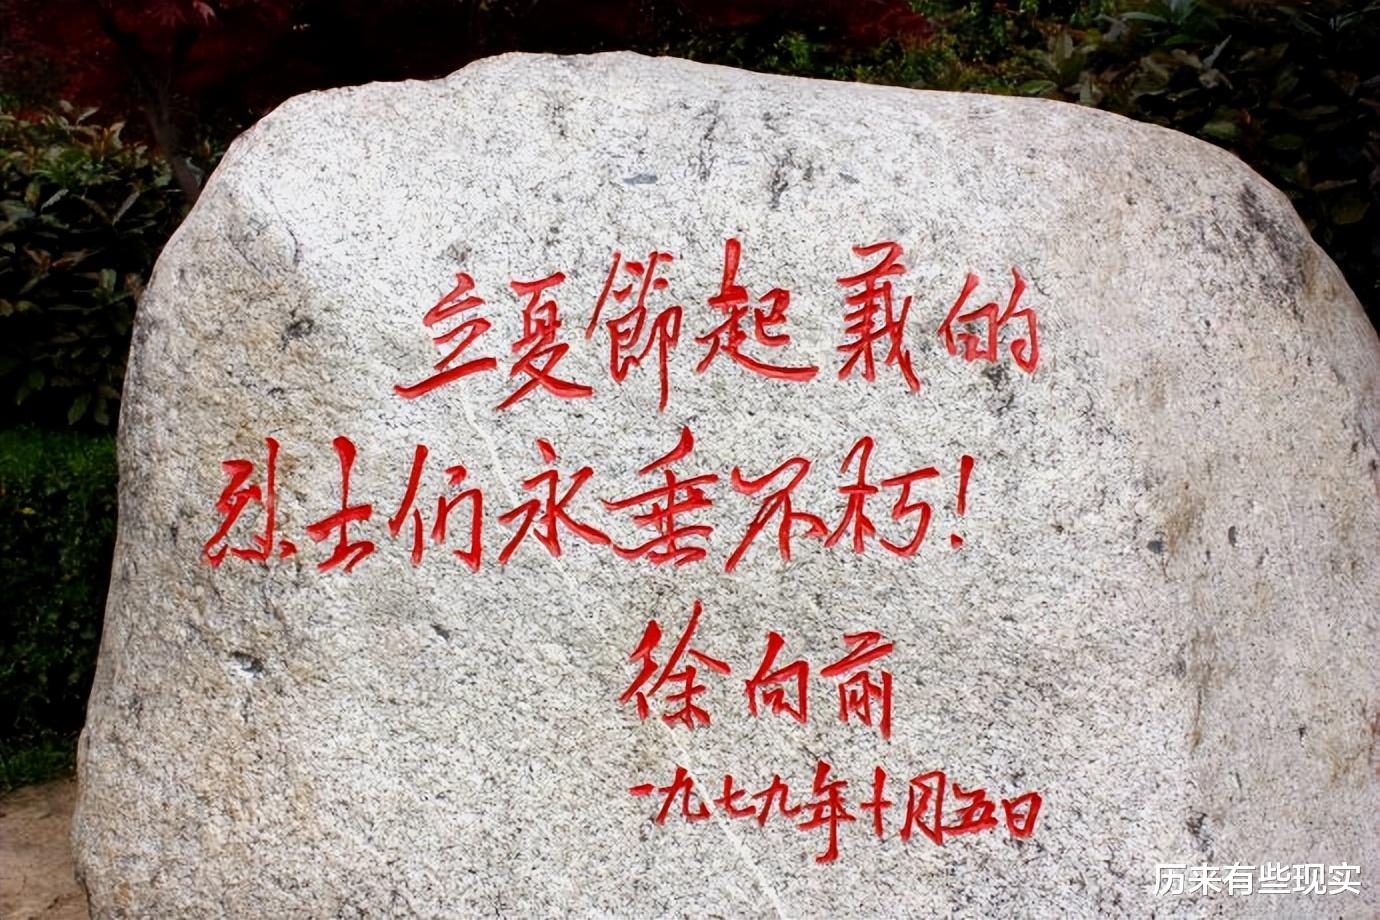 立夏節起義的
烈士们永垂不朽!
徐向前
一九七九年十月五日
历来有些现实